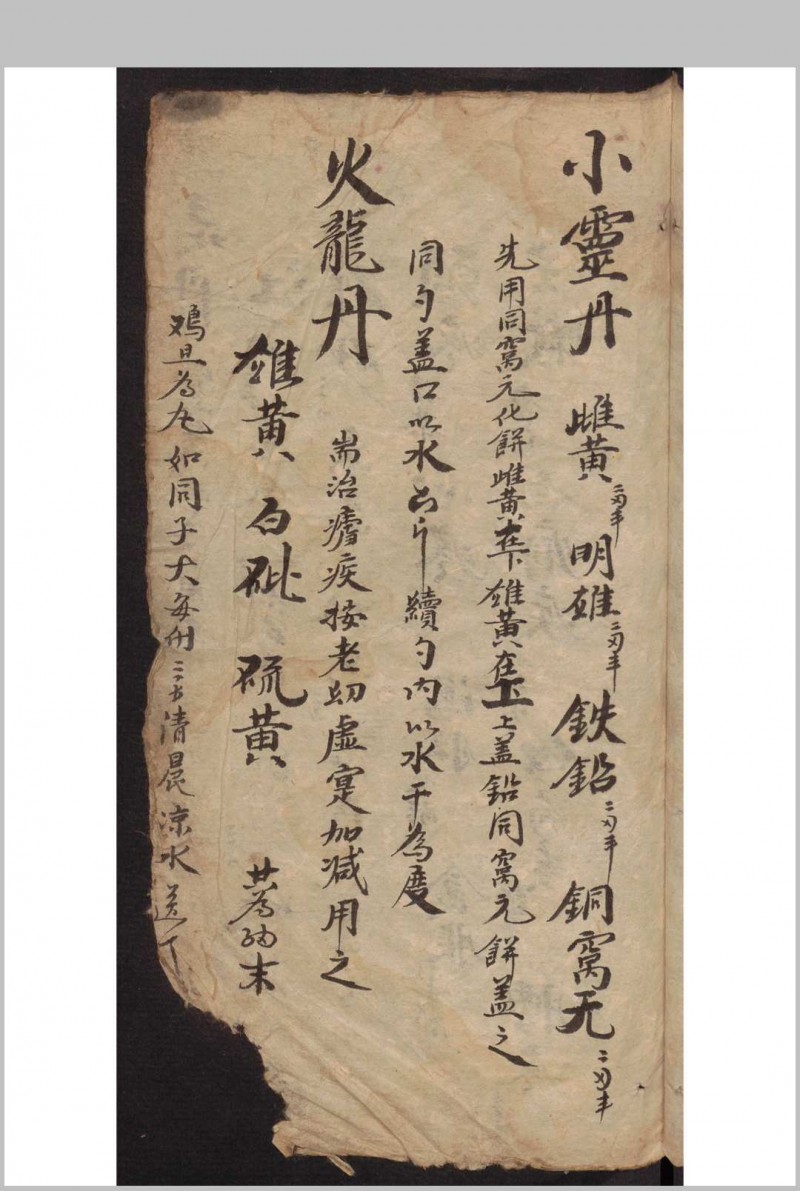 小靈丹 雌黄二兩半 明雄二兩半 鉄鉛二兩半 銅窩元二兩半
先用同窩元化餅雌黄在下雄黄在上上盖鉛同窩元餅盖之
同勺盖口以水 續勺內以水干為度
火龍丹 耑治瘧疾按老幼虛寔加减用之
雄黄 白砒 硫黄 共為細末
鳮旦為丸如同子大每付三五清晨凉水送下